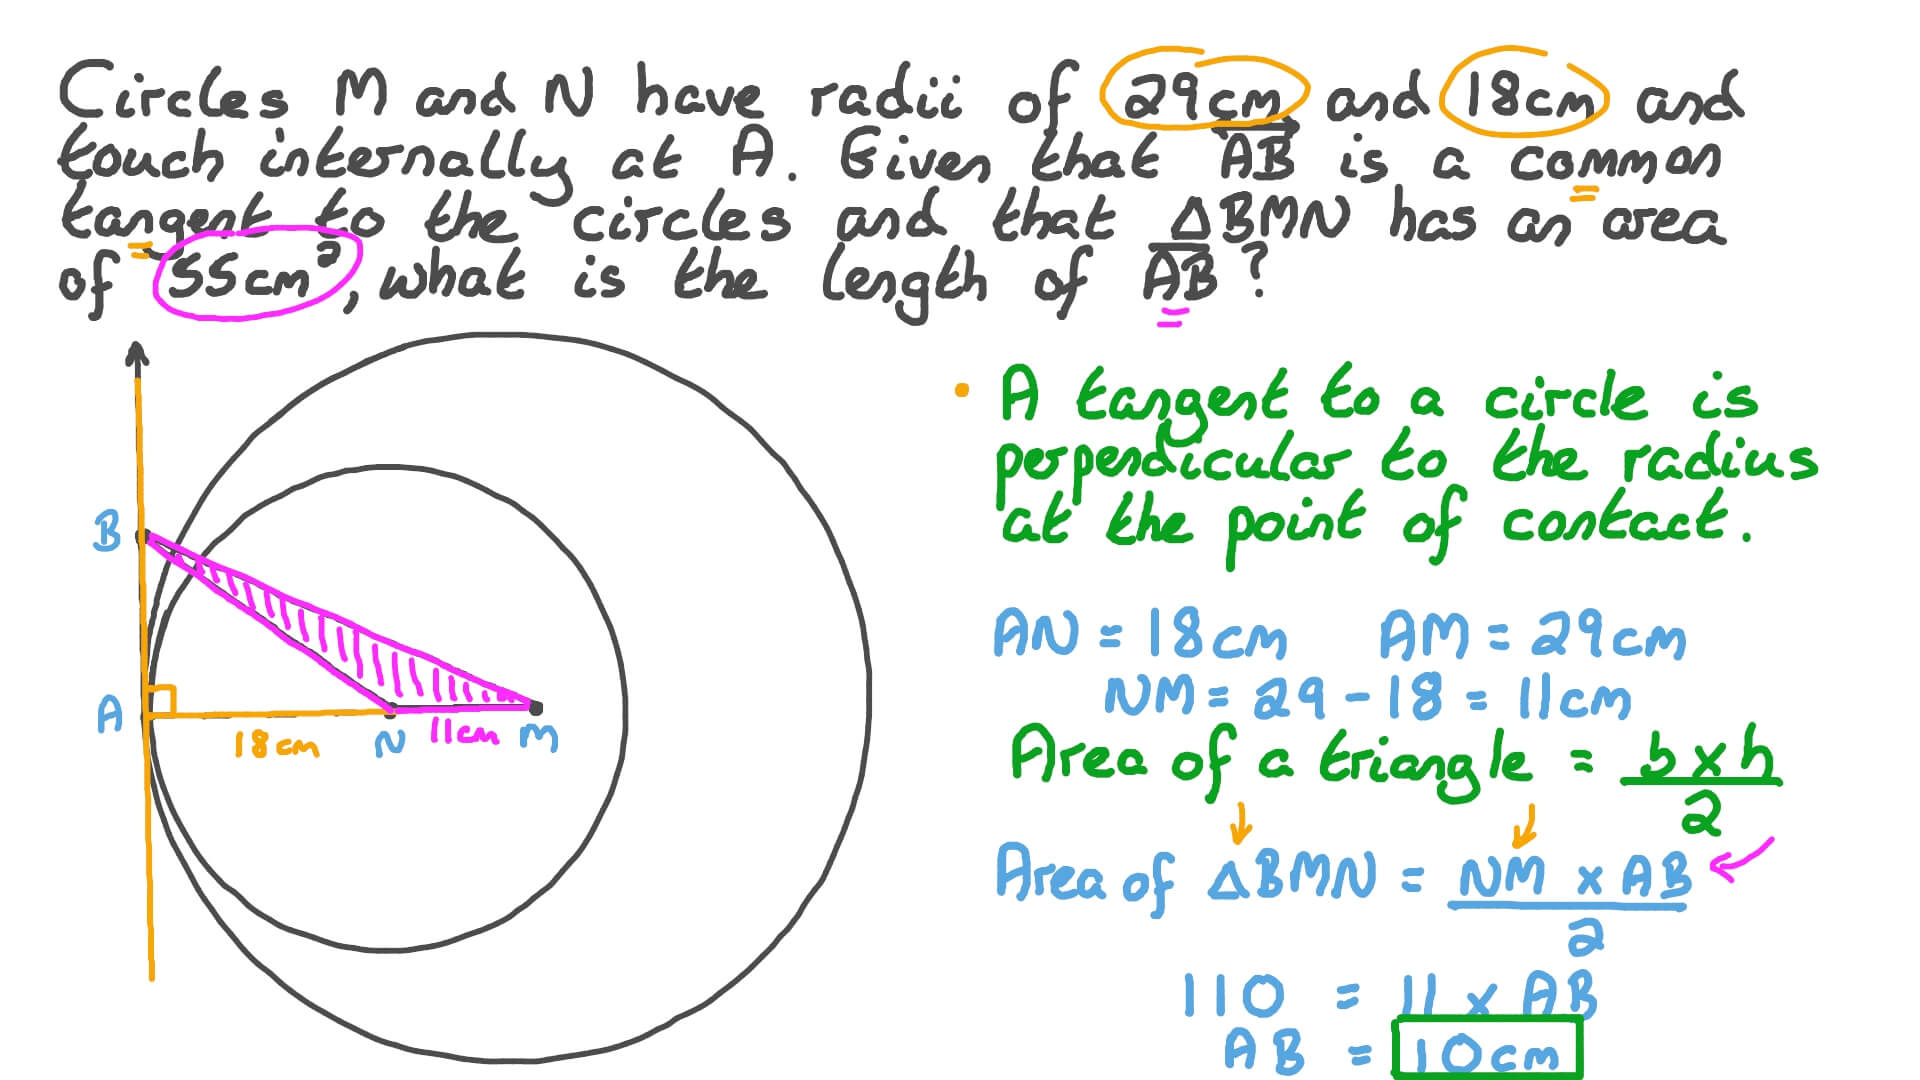 Circles M and N have radii of 29cm and 18cm and
touch internally at A. Given that AB is a common
tangent to the circles and that △BMN has an area
of 55cm², what is the length of AB?
• A tangent to a circle is
perpendicular to the radius
at the point of contact.
B
A
18cm
N
11cm
M
AN = 18cm AM = 29cm
NM = 29 - 18 = 11cm
Area of a triangle = b x h
2
Area of △BMN = NM x AB
2
110 = 11 x AB
AB = 10cm